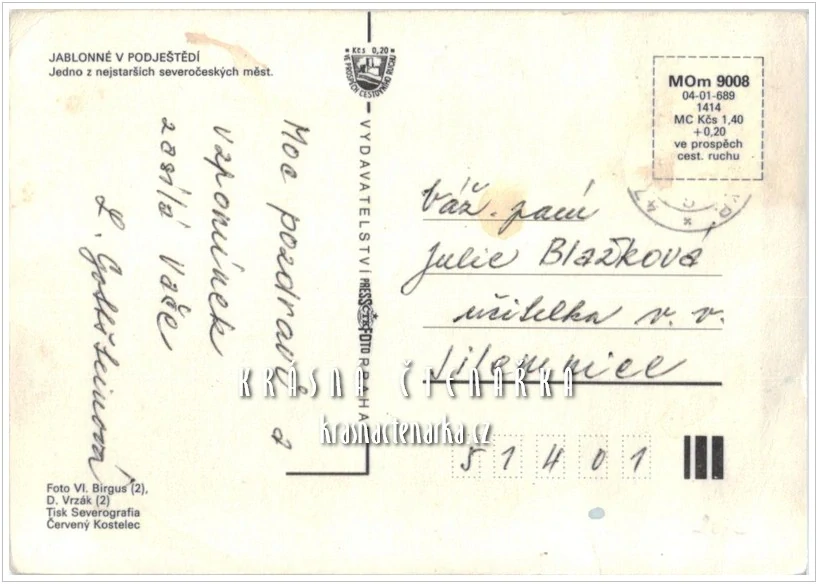 JABLONNÉ V PODJEŠTĚDÍ
Jedno z nejstarších severočeských měst.
Moc pozdravů a
vzpomínek
zasílá Vaše
L.
Foto Vl. Birgus (2),
D. Vrzák (2)
Tisk Severografia
Červený Kostelec
Kčs 0,20
VE PROSPĚCH CESTOVNÍHO RUCHU
VYDAVATELSTVÍ PRESSFOTO PRAHA
ČTK
MOm 9008
04-01-689
1414
MC Kčs 1,40
+0,20
ve prospěch
cest. ruchu
47
Váž. paní
Julie Blažková
učitelka v. v.
Jilemnice
51401
KRÁSNÁ ČTENÁŘKA
krasnactenarka.cz